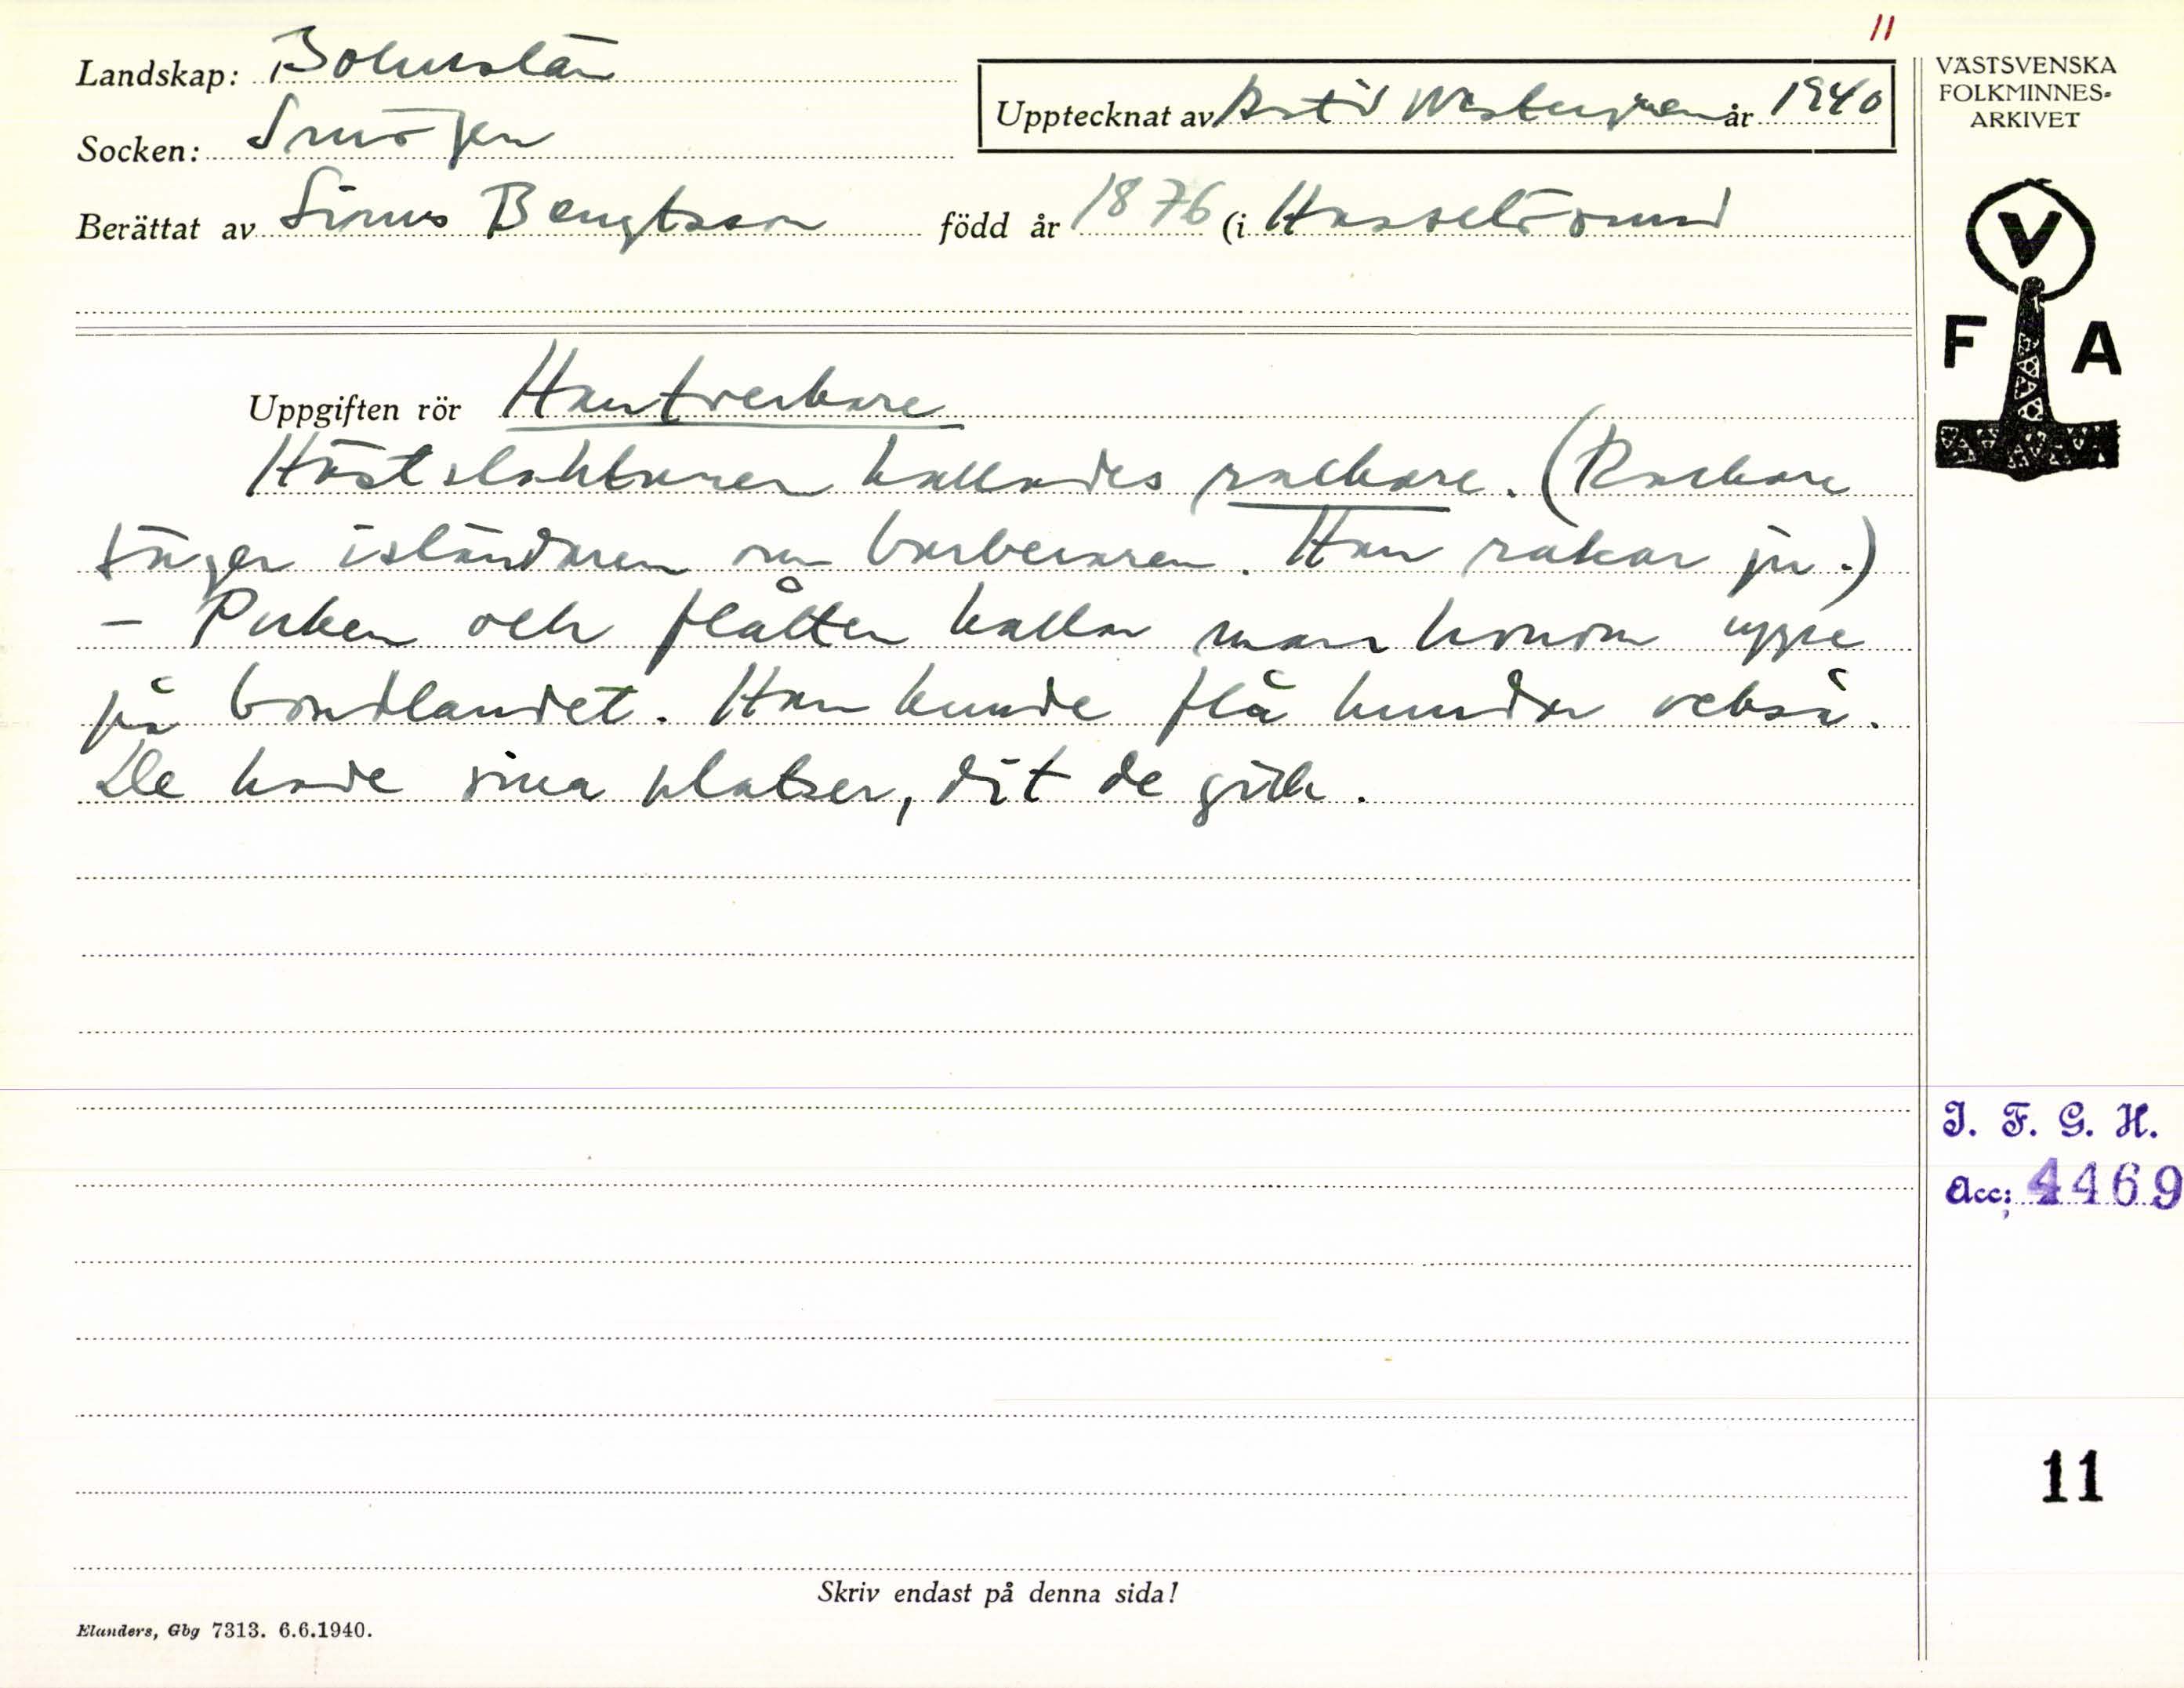 11
Landskap: Bohuslän
Socken: Smögen
Upptecknat av Westergren år 1940
Berättat av Sinus Bengtsson född år 1876 (i Hasselösund
VÄSTSVENSKA
FOLKMINNES-
ARKIVET
V
F A
Uppgiften rör Hantverkare
Hästslaktaren kallades rackare. (Rackare
säger isländaren om barberaren. Han rakar ju.)
- Puken och flåtten kallar man honom uppe
på bondlandet. Han kunde flå hundar också.
De hade sina platser, dit de gick.
I. F. G. H.
Acc: 4469
11
Skriv endast på denna sida!
Elanders, Gbg 7313. 6.6.1940.